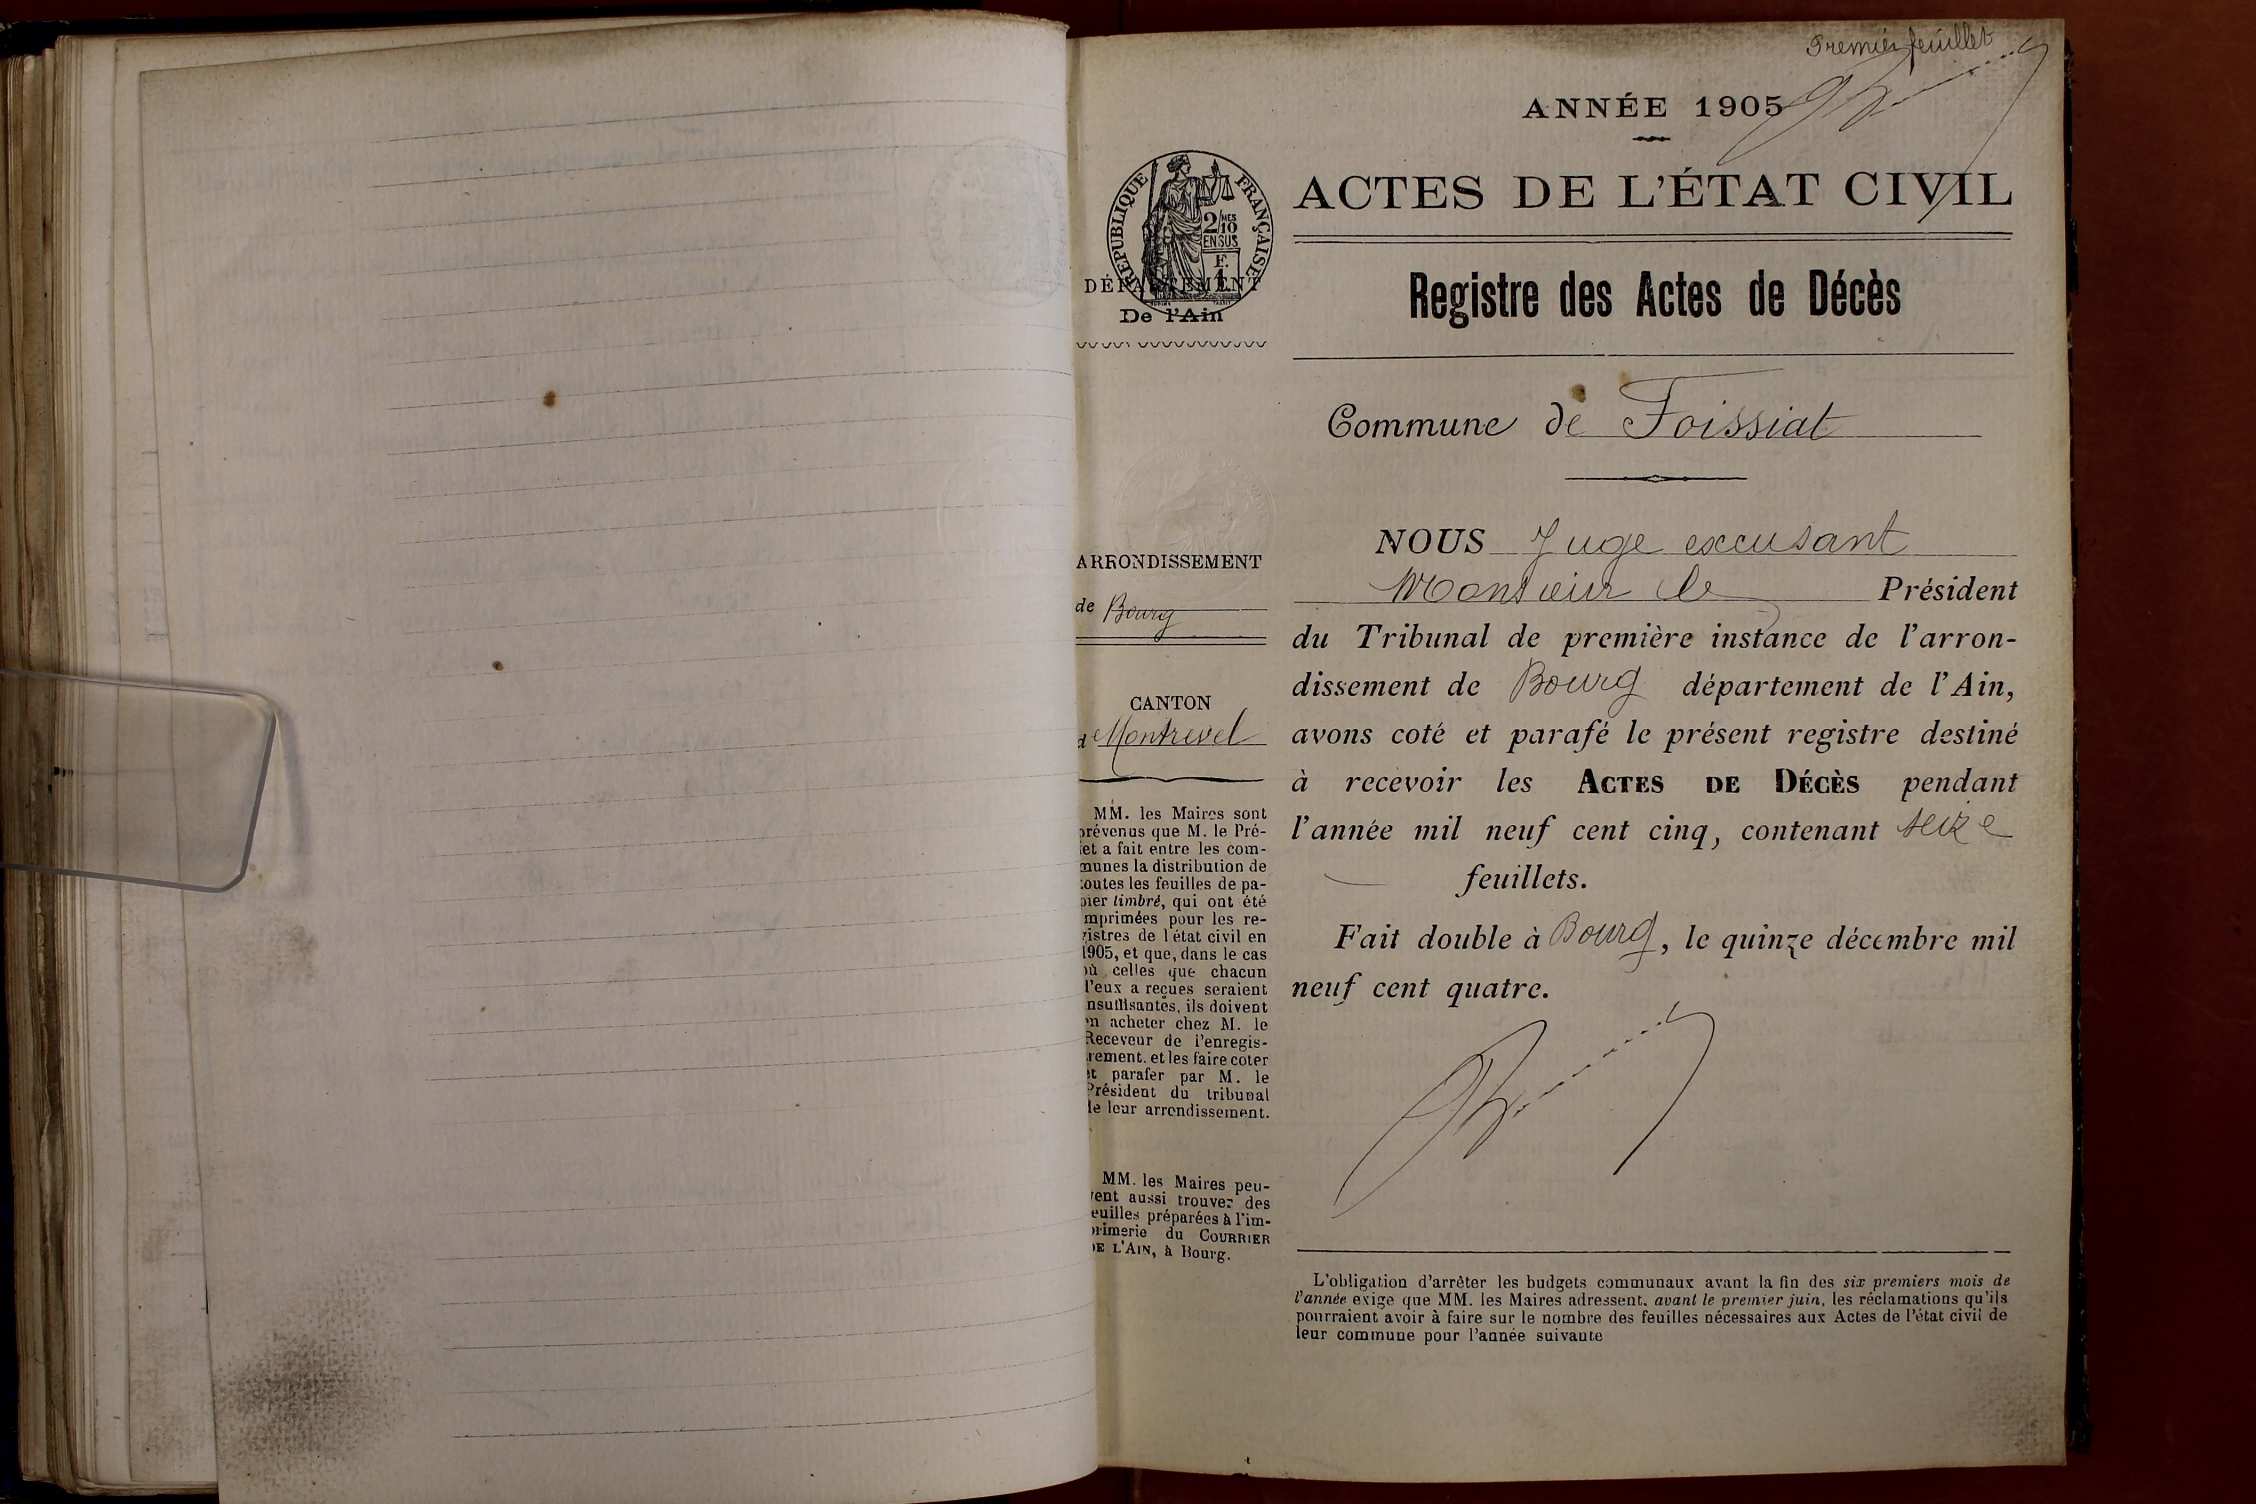 Premier feuillet
ANNÉE 1905
ACTES DE L'ÉTAT CIVIL
RÉPUBLIQUE FRANÇAISE
2/10 MES
EN SUS
F.
1
DÉPARTEMENT
De l'Ain
Registre des Actes de Décès
Commune de Foissiat
ARRONDISSEMENT
de Bourg
CANTON
d Montrevel
MM. les Maires sont
prévenus que M. le Pré-
fet a fait entre les com-
munes la distribution de
toutes les feuilles de pa-
pier timbré, qui ont été
imprimées pour les re-
gistres de l'état civil en
1905, et que, dans le cas
où celles que chacun
d'eux a reçues seraient
insuffisantes, ils doivent
en acheter chez M. le
Receveur de l'enregis-
trement. et les faire coter
et parafer par M. le
Président du tribunal
de leur arrondissement.
MM. les Maires peu-
vent aussi trouver des
feuilles préparées à l'im-
primerie du COURRIER
DE L'AIN, à Bourg.
NOUS Juge excusant
Monsieur le Président
du Tribunal de première instance de l'arron-
dissement de Bourg département de l'Ain,
avons coté et parafé le présent registre destiné
à recevoir les ACTES DE DÉCÈS pendant
l'année mil neuf cent cinq, contenant seize
feuillets.
Fait double à Bourg, le quinze décembre mil
neuf cent quatre.
L'obligation d'arrêter les budgets communaux avant la fin des six premiers mois de
l'année exige que MM. les Maires adressent. avant le premier juin, les réclamations qu'ils
pourraient avoir à faire sur le nombre des feuilles nécessaires aux Actes de l'état civil de
leur commune pour l'année suivante